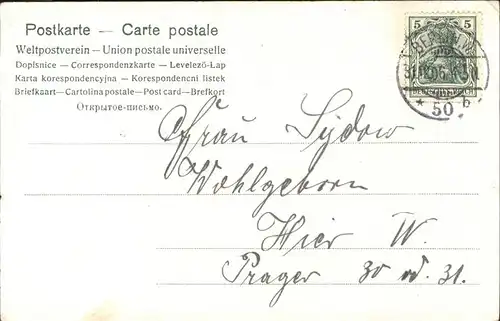 Postkarte — Carte postale
Weltpostverein – Union postale universelle
Dopisnice – Correspondenzkarte – Levelező-Lap
Karta korespondencyjna – Korespondencni listek
Briefkaart – Cartolina postale – Post card – Brefkort
Открытое-письмо.
5 5
BERLIN W.
* 50 b.
Frau Sydow
Wohlgeboren
Hier W.
Prager 30 od. 31.